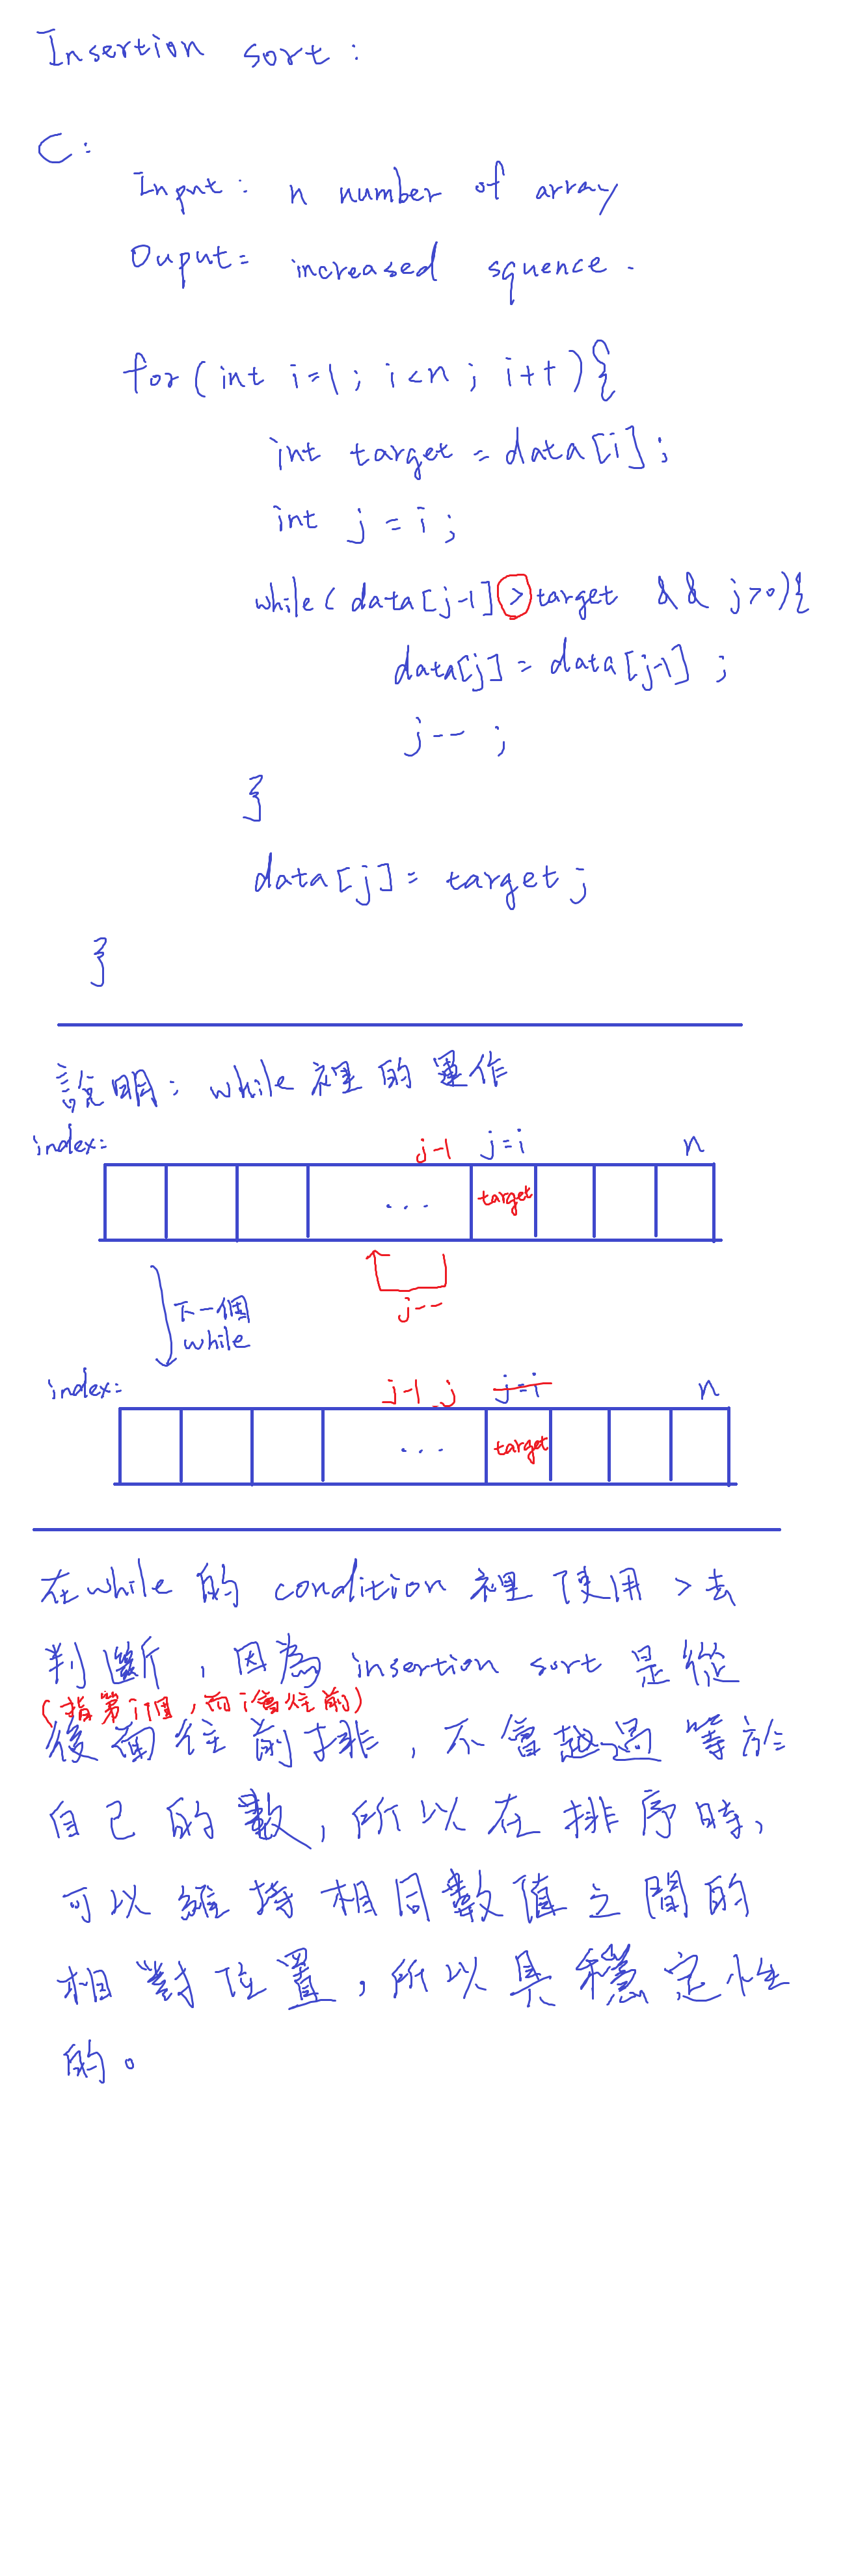 Insertion sort :
C :
Input : n number of array
Ouput = increased squence .
for ( int i=1 ; i<n ; i++ ) {
int target = data[i] ;
int j = i ;
while ( data[j-1] > target && j>0 ) {
data[j] = data[j-1] ;
j-- ;
}
data[j] = target ;
}
說明 : while 裡的運作
index: j-1 j=i n
... target
j--
下一個
while
index: j-1 j j=i n
... target
在while 的 condition 裡 使用 > 去
判斷 , 因為 insertion sort 是從
(指第i個 , 而i會往前)
後面往前排 , 不會越過 等於
自己的數 , 所以在排序時、
可以維持相同數值之間的
相對位置 , 所以具穩定性
的。